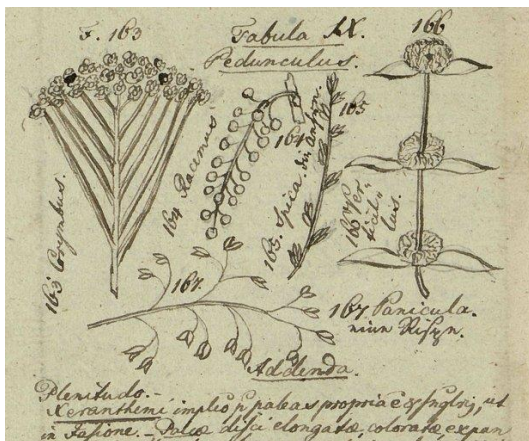 F. 163
Tabula IX.
Pedunculus.
166
163 Corymbus.
164 Racemus
164
165. Spica.
165
166 Ver-
ticil-
lus.
167.
167 Panicula.
Addenda.
Plenitudo.-
Xeranthemi paleas propria ut
in - Paleæ disci elongatæ, coloratæ expan